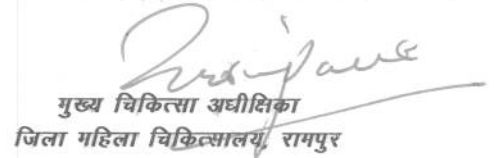 मुख्य चिकित्सा अधीक्षिका
जिला महिला चिकित्सालय, रामपुर